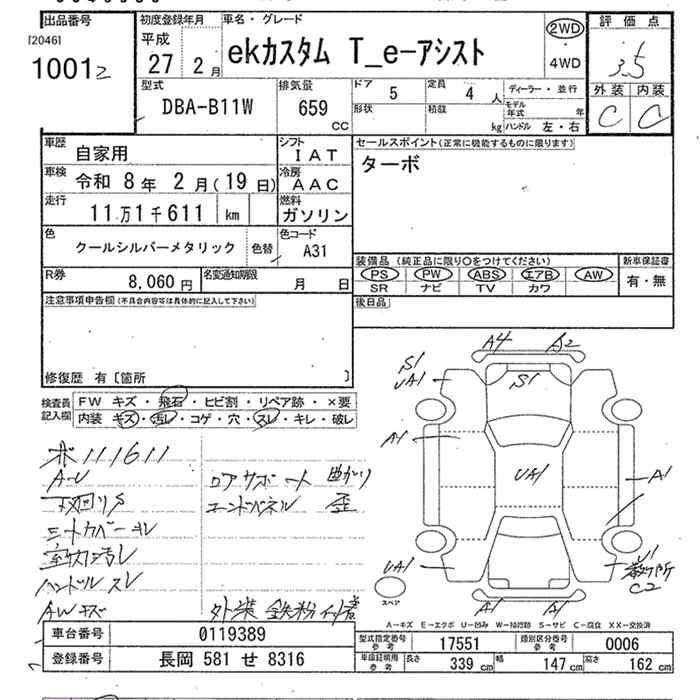 出品番号
[2046]
10012
初度登録年月
平成
27 2月
車名・グレード
ekカスタム T_e-アシスト
2WD
・
4WD
評価点
3.5
外装 内装
C C
型式
DBA-B11W
排気量
659
CC
ドア 5
定員 4 人
形状
積載 kg
ディーラー・並行
モデル年式 年
ハンドル 左・右
車歴
自家用
シフト
IAT
セールスポイント(正常に機能するものに限ります)
ターボ
車検 令和 8年 2月(19日)
冷房
AAC
走行
11万1千611 km
燃料
ガソリン
色
クールシルバーメタリック
色替
色コード
A31
装備品 (純正品に限り○をつけてください)
PS PW ABS エアB AW
SR ナビ TV カワ
新車保証書
有・無
R券
8,060円
名変通知期限
月 日
後日品
注意事項申告欄(不具合内容等は具体的に記入して下さい)
修復歴 有〔箇所 〕
検査員記入欄
FW キズ・飛石・ヒビ割・リペア跡・×要
内装 キズ・汚レ・コゲ・穴・スレ・キレ・破レ
ボ111611
A-U
下回りS
シートカバーキレ
室内汚レ
ハンドルスレ
AWキズ
ロアサポート曲がり
エンドパネル歪
外装鉄粉付着
A4 A2
S1
UA1
S1
A1
UA1
A1
UA1
U1
C2
A1 A1
スペア
A-キズ E-エクボ U-凹み W-補修跡 S-サビ C-腐食 XX-交換済
車台番号 0119389
登録番号 長岡 581 せ 8316
型式指定番号
参考
17551
類別区分番号
参考
0006
車庫証明用
参考
長さ 339 cm
幅 147 cm
高さ 162 cm